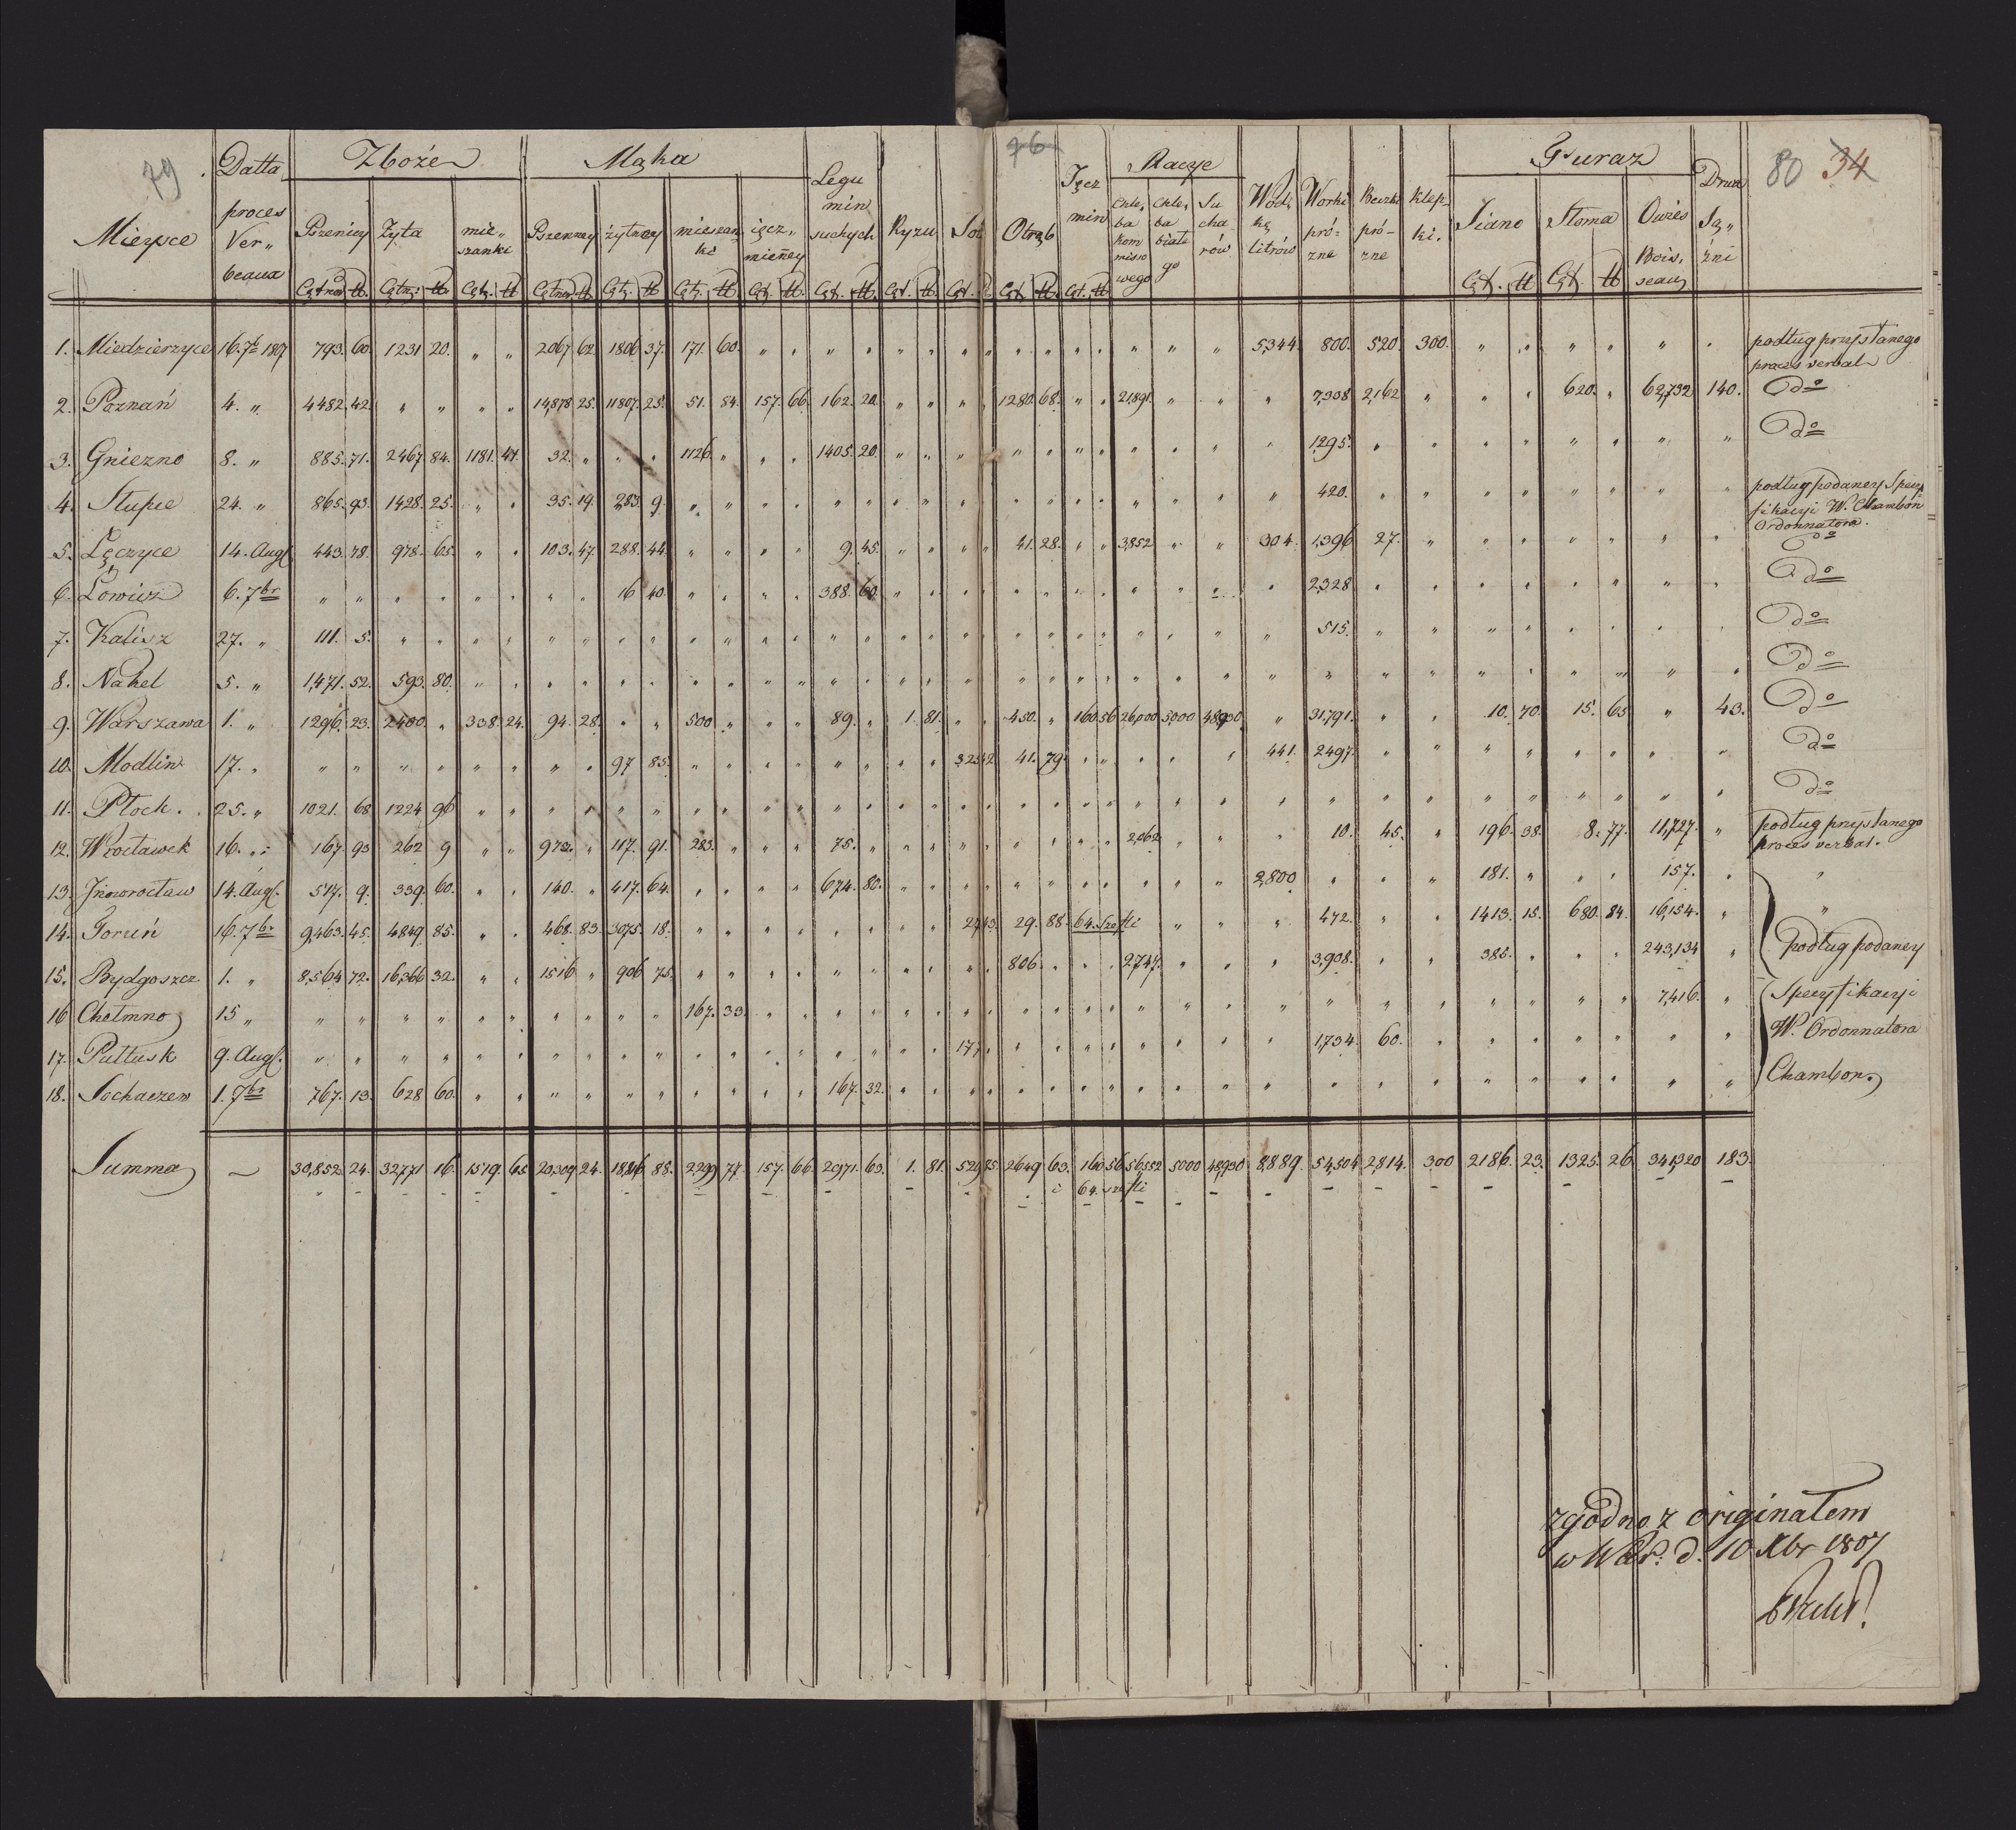 79 . Datta Zboże Mąka Legu 76 Jęcz Racye Furaz Drwa 80 34
Mieysce proces Ver„ beaux Pszenicy Żyta mie„ szanki Pszenney żytney mieszan ki ięcz„ mienney min suchych Ryzu Sol Otrąb min Chle, ba kom misso wego Chle, ba białe go Su cha rów Wodk kę litrów Worki pró= zne Beczki pró= zne Klep ki. Siano Słoma Owies Bois, seaux Są„ żni
1. Miedzierzyce 16. 7br 1807 793. 60. 1231 20. „ „ 2067 62. 1806 37. 171. 60. „ „ „ „ „ „ „ „ „ „ „ „ „ „ „ 5,344. 800. 520. 300. „ „ „ „ „ „ podług przysłanego
proces verbal
2. Poznań 4. „ 4482. 42. „ „ „ „ 14,878 25. 11807. 25. 51. 84. 157. 66. 162. 20. „ „ „ „ 1280. 68. „ „ 21,891. „ „ „ 7,338 2,162 „ „ „ 620. „ 62,732 140. Do
3. Gniezno 8. „ 885. 71. 2467. 84. 1181. 41. 32. „ „ „ 1126. „ „ „ 1405. 20. „ „ „ „ „ „ „ „ „ „ „ „ 1,295. „ „ „ „ „ „ „ „ Do
4. Słupce 24. „ 865. 93. 1428. 25. „ „ 35. 19. 283. 9. „ „ „ „ „ „ „ „ „ „ „ „ „ „ „ „ „ „ 420. „ „ „ „ „ „ „ „ podług podaney Specy
fikacyi W. Chambon
Ordonnatora.
5. Łęczyce 14. Augt 443. 78. 978. 65. „ „ 103. 47. 288. 44. „ „ „ „ 9. 45. „ „ „ „ 41. 28. „ „ 3,852 „ „ 304. 1,396 27. „ „ „ „ „ „ „ Do
6. Łowicz 6. 7br „ „ „ „ „ „ „ „ 16 40. „ „ „ „ 388. 60. „ „ „ „ „ „ „ „ „ „ „ „ 2,328 „ „ „ „ „ „ „ „ Do
7. Kalisz 27. „ 111. 5. „ „ „ „ „ „ „ „ „ „ „ „ „ „ „ „ „ „ „ „ „ „ „ „ „ „ 515. „ „ „ „ „ „ „ „ Do
8. Nakel 5. „ 1,471. 52. 593. 80. „ „ „ „ „ „ „ „ „ „ „ „ „ „ „ „ „ „ „ „ „ „ „ „ „ „ „ „ „ „ „ „ „ Do
9. Warszawa 1. „ 1296. 23. 2400. „ 338. 24. 94. 28. „ „ 500. „ „ „ 89. „ 1. 81. „ „ 450. „ 160 56 26,000 5,000 48,930 „ 31,791. „ „ 10. 70. 15. 65 „ 43. Do
10. Modlin 17. „ „ „ „ „ „ „ „ „ 97 85. „ „ „ „ „ „ „ „ 325 42. 41. 79. „ „ „ „ „ 441. 2497. „ „ „ „ „ „ „ „ Do
11. Płock. 25. „ 1021. 68 1224 96 „ „ „ „ „ „ „ „ „ „ „ „ „ „ „ „ „ „ „ „ „ „ „ „ „ „ „ „ „ „ „ „ „ Do
12. Włocławek 16. „ 167. 93 262 9 „ „ 972. „ 117. 91. 283. „ „ „ 75. „ „ „ „ „ „ „ „ „ 2,062 „ „ „ 10. 45. „ 196. 38. 8. 77. 11,727. „ podług przysłanego
proces verbal.
13. Jnowrocław 14. Augt. 517. 9. 339. 60. „ „ 140. „ 417. 64. „ „ „ „ 674. 80. „ „ „ „ „ „ „ „ „ „ „ 2,800 „ „ „ 181. „ „ „ 157. „ „
14. Toruń 16. 7br 9,463. 45. 4849. 85. „ „ 468. 83. 3075. 18. „ „ „ „ „ „ „ „ 29. 88. 64. szefli „ „ „ 472. „ „ 1413. 15. 680. 84. 16,154. „ „
15. Bydgoszcz 1. „ 8,564 72. 16,366 32. „ „ 1516 „ 906 75. „ „ „ „ „ „ „ „ „ „ 806. „ „ „ 2,747. „ „ „ 3,908. „ „ 385. „ „ „ 243,134 „ Podług podaney
16 Chełmno 15 „ „ „ „ „ „ „ „ „ „ „ 167. 33. „ „ „ „ „ „ „ „ „ „ „ „ „ „ „ „ „ „ „ „ „ „ „ 7,416. „ Specyfikacyi
17. Pułtusk 9. Augt. „ „ „ „ „ „ „ „ „ „ „ „ „ „ „ „ „ „ 177. „ „ „ „ „ „ „ „ „ 1,734. 60. „ „ „ „ „ „ „ W. Ordonnatora
18. Sochaczew 1. 7br 767. 13. 628 60. „ „ „ „ „ „ „ „ „ „ 167. 32. „ „ „ „ „ „ „ „ „ „ „ „ „ „ „ „ „ „ „ „ „ Chambon.
Summa — 30,852. 24. 32,771 16. 1519. 65. 20,309 24. 18,816 88. 2,299 77. 157. 66 2971. 63. 1. 81. 529 85. 2649 63. 160 56 56,552 5000 48,930 8,889. 54,504 2,814. 300 2186. 23. 1325. 26 341,320 183.
i 64. szefli
zgodno z originałem
w War: d. 10 Xbr 1807